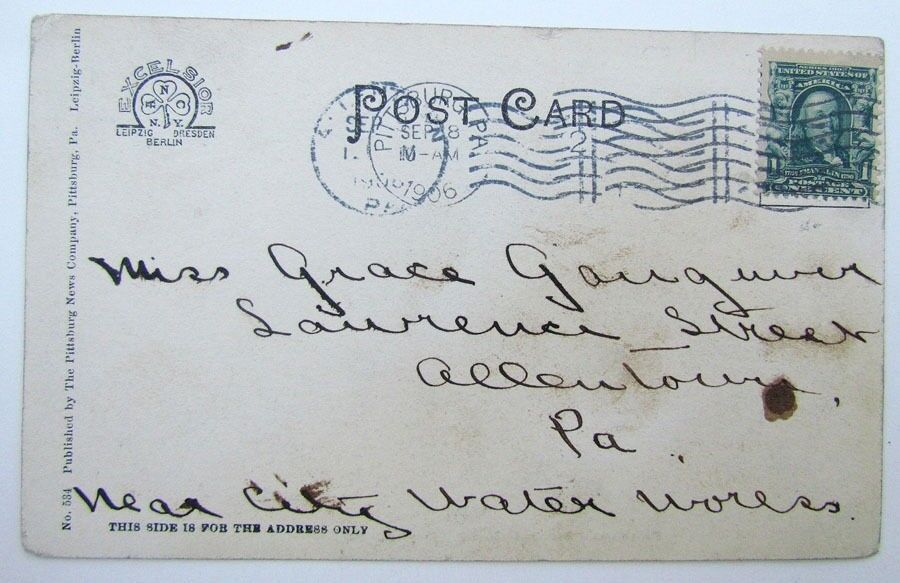 POST CARD
EXCELSIOR
A N C
N. Y.
LEIPZIG DRESDEN
BERLIN
PITTSBURG, PA
SEP 28
10-AM
1906
2
SERIES 1902
UNITED STATES OF
AMERICA
1 1
FRANKLIN
POSTAGE
ONE CENT
Miss Grace Gangwer
Lawrence Street
Allentown,
Pa.
Near City Water Works.
THIS SIDE IS FOR THE ADDRESS ONLY
No. 534 Published by The Pittsburg News Company, Pittsburg, Pa. Leipzig-Berlin